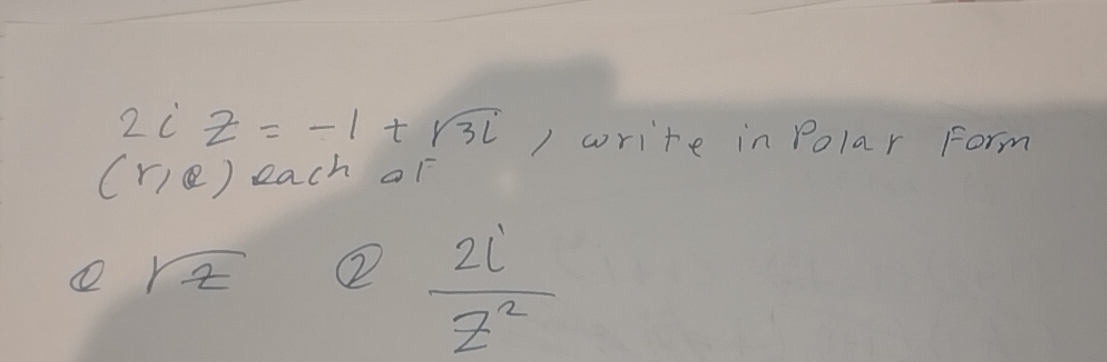 2i z = -1 + √3i , write in Polar Form
(r, θ) each of
① √z ② 2i / z²